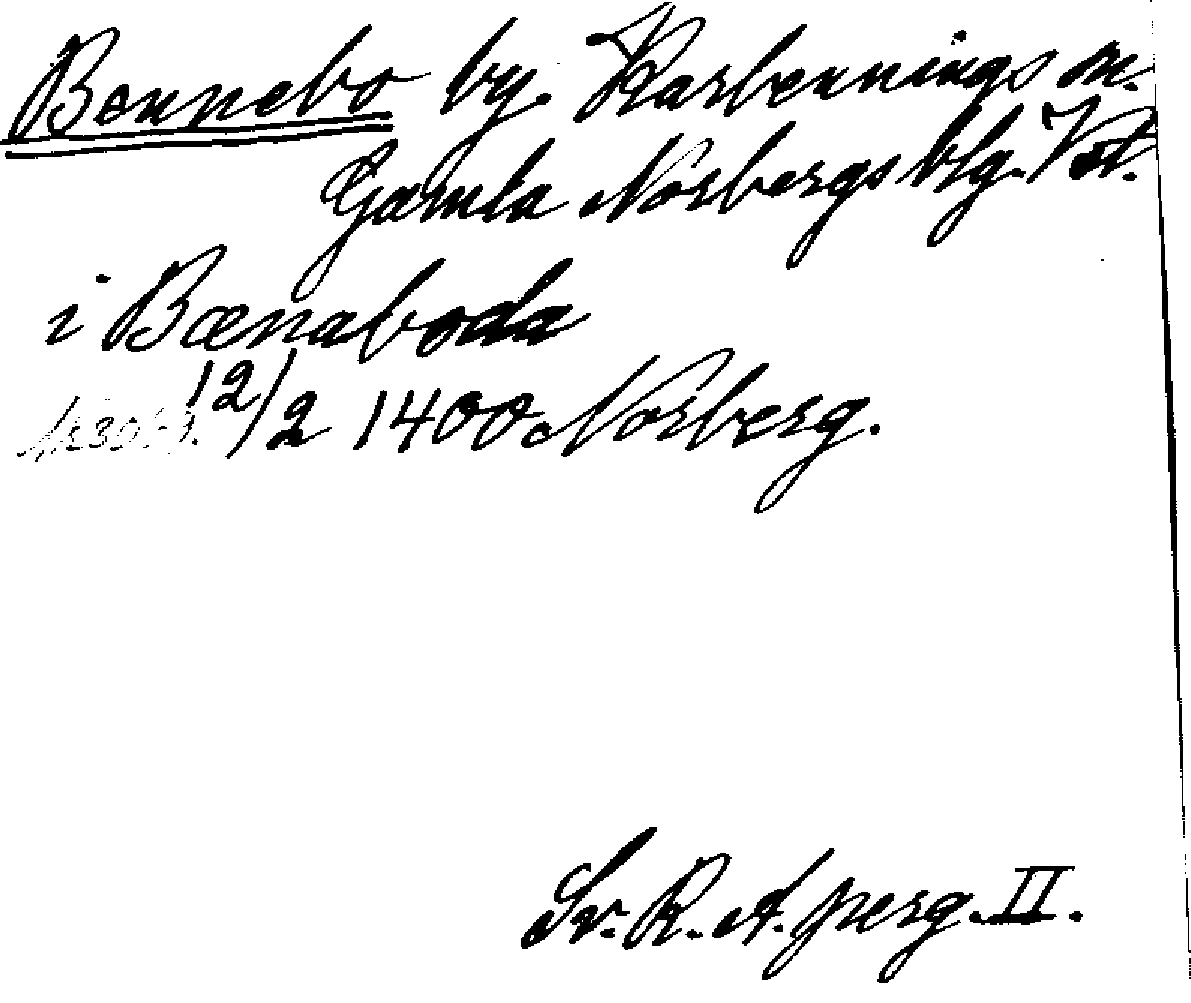 Bennebo by. Karbennings sn.
Gamla Norbergs blg. Vst.
i Bænaboda
12/2 1400 Norberg.
Sv. R. A. perg. II.